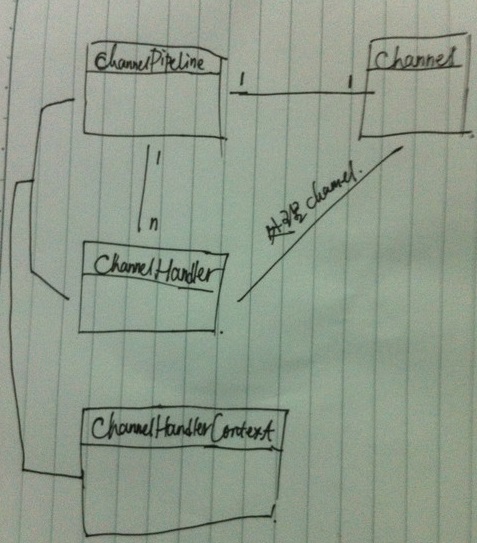 ChannelPipeline
Channel
1
1
1
n
处理 channel.
ChannelHandler
ChannelHandlerContext